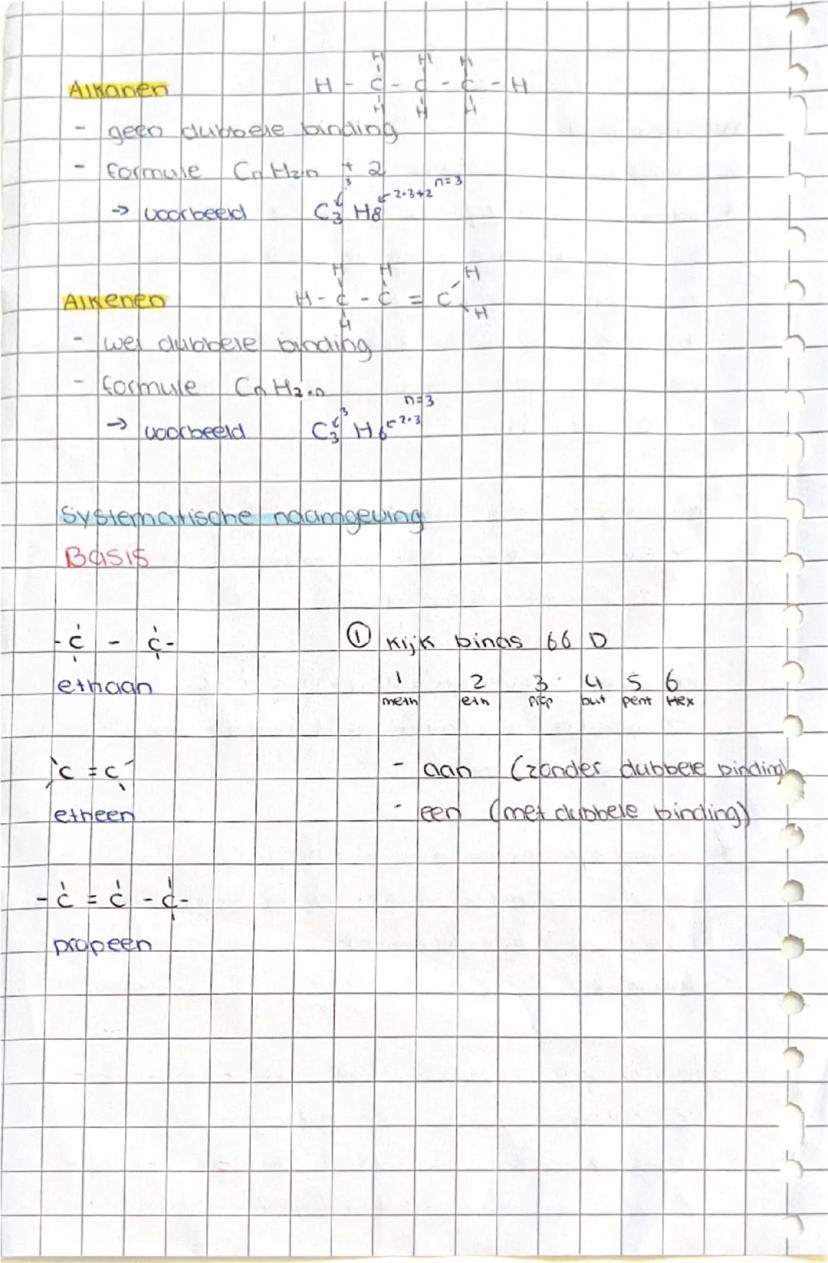 H H H
Alkanen H - C - C - C - H
H H H
- geen dubbele binding
- formule CnH2n + 2
→ voorbeeld C3 H8 3 2·3+2 n=3
H H H
Alkenen H - C - C = C
H H
- wel dubbele binding
- formule CnH2·n
→ voorbeeld C3 H6 3 2·3 n=3
Systematische naamgeving
Basis
- C - C - ① Kijk binas 66 D
ethaan 1 2 3 4 5 6
meth eth prop but pent Hex
C = C - aan (zonder dubbele binding)
etheen - een (met dubbele binding)
- C = C - C -
propeen